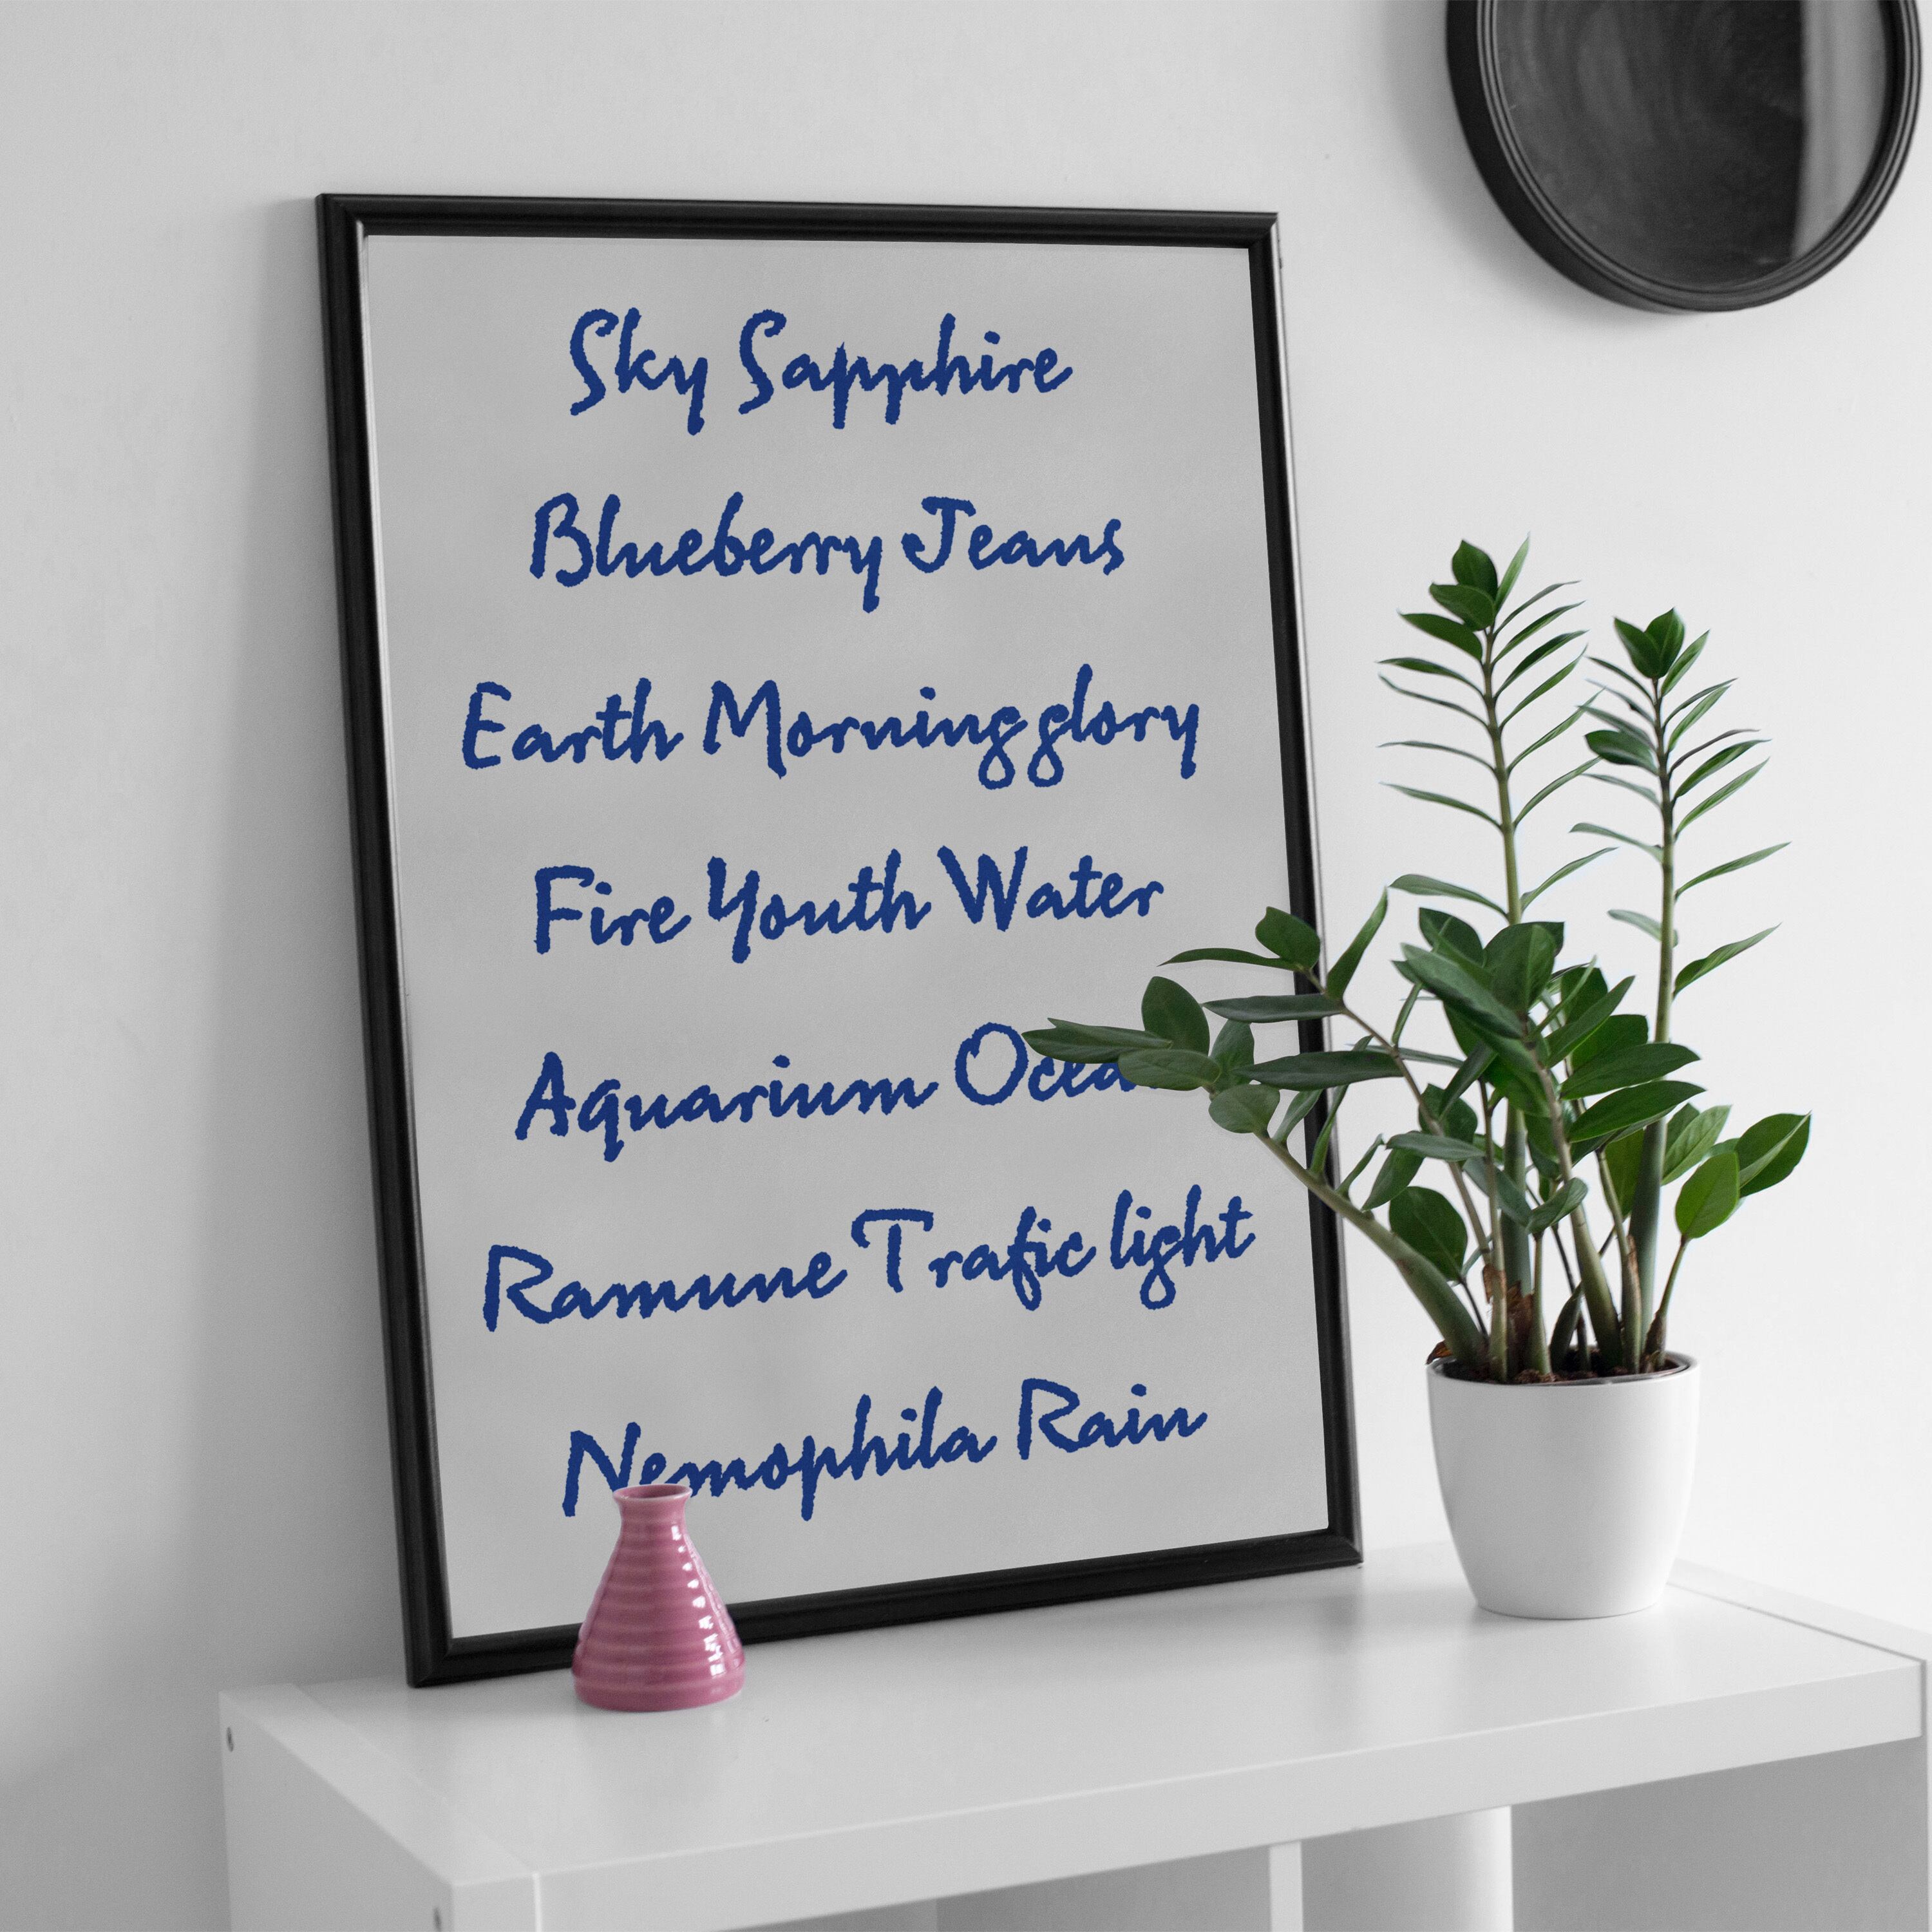 Sky Sapphire
Blueberry Jeans
Earth Morning glory
Fire Youth Water
Aquarium
Ramune Trafic light
Nemophila Rain